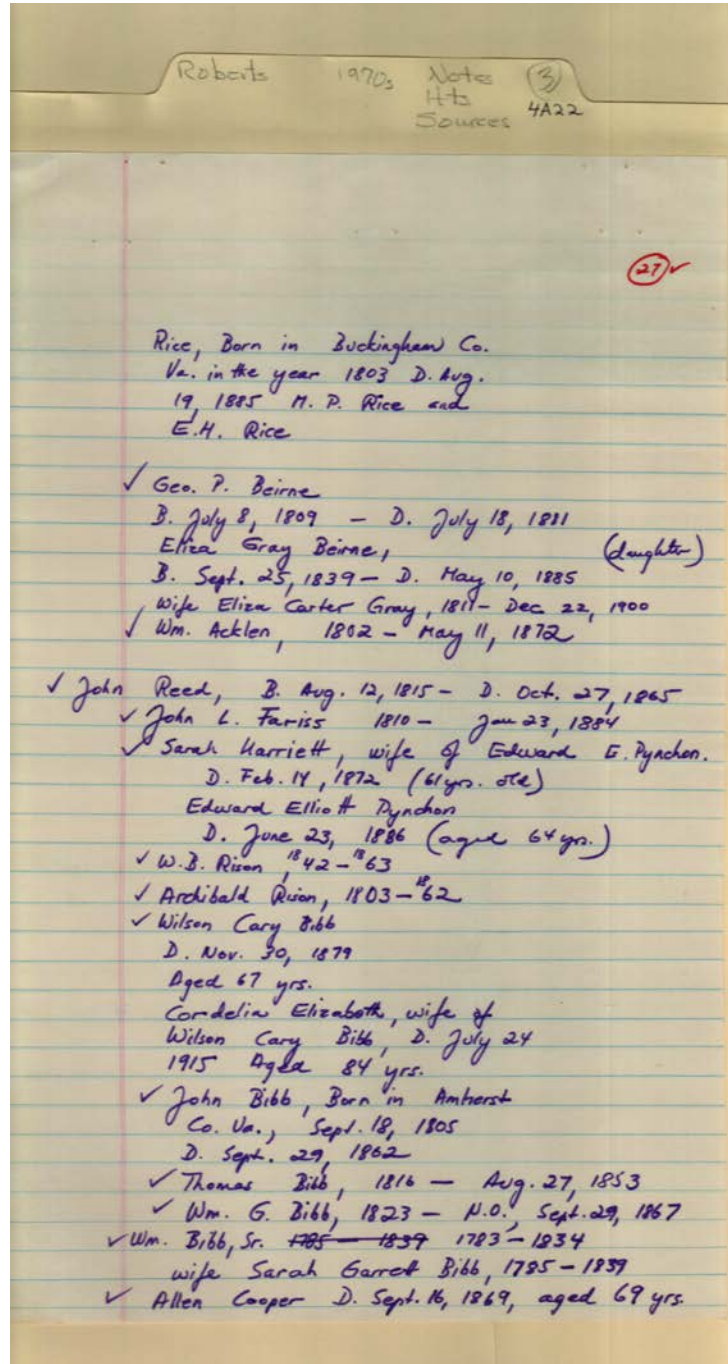 Roberts 1970s Notes (3)
Hts 4A22
Sources
(27) ✓
Rice, Born in Buckingham Co.
Va. in the year 1803 D. Aug.
19, 1885 M. P. Rice and
E.H. Rice
✓ Geo. P. Beirne
B. July 8, 1809 — D. July 18, 1881
Eliza Gray Beirne, (daughter)
B. Sept. 25, 1839 — D. May 10, 1885
wife Eliza Carter Gray, 1811 - Dec 22, 1900
✓ Wm. Acklen, 1802 - May 11, 1872
✓ John Reed, B. Aug. 12, 1815 - D. Oct. 27, 1865
✓ John L. Fariss 1810 - Jan 23, 1884
✓ Sarah Harriett, wife of Edward E. Pynchon.
D. Feb. 14, 1872 (61 yrs. old)
Edward Elliott Pynchon
D. June 23, 1886 (aged 64 yrs.)
✓ W.B. Rison, 1842 - 1863
✓ Archibald Rison, 1803 - 1862
✓ Wilson Cary Bibb
D. Nov. 30, 1879
Aged 67 yrs.
Cordelia Elizabeth, wife of
Wilson Cary Bibb, D. July 24
1915 Aged 84 yrs.
✓ John Bibb, Born in Amherst
Co. Va., Sept. 18, 1805
D. Sept. 29, 1862
✓ Thomas Bibb, 1816 — Aug. 27, 1853
✓ Wm. G. Bibb, 1823 - N.O., Sept. 29, 1867
✓ Wm. Bibb, Sr. 1785 - 1839 1783 - 1834
wife Sarah Garrett Bibb, 1785 - 1839
✓ Allen Cooper D. Sept. 16, 1869, aged 69 yrs.